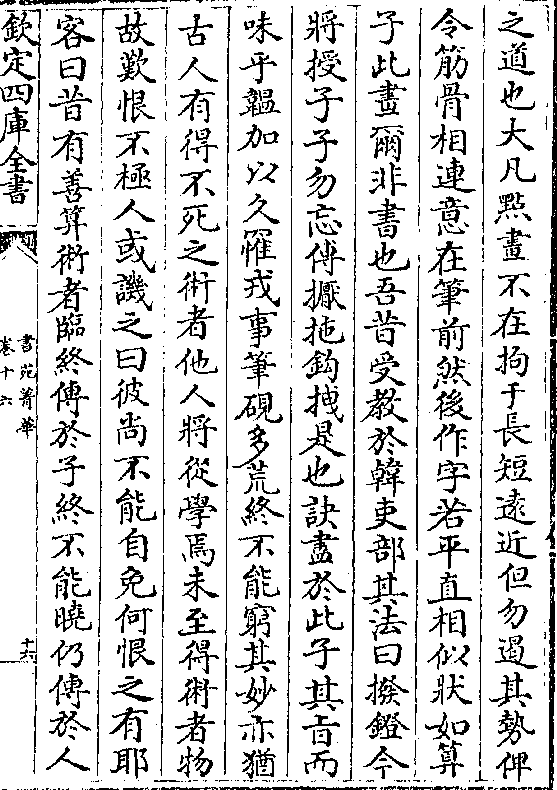 之道也大凡點畫不在拘于長短遠近但勿遏其勢俾
令筋骨相連意在筆前然後作字若平直相似狀如算
子此畫爾非書也吾昔受教於韓吏部其法曰撥鐙今
將授子子勿忘傳擫拖鈎拽是也訣盡於此子其旨而
味乎韞加以久罹戎事筆硯多荒終不能窮其妙亦猶
古人有得不死之術者他人將從學焉未至得術者物
故歎恨不極人或譏之曰彼尚不能自免何恨之有耶
容曰昔有善算術者臨終傳於子終不能曉仍傳於人
欽定四庫全書
書苑菁華
卷十六
十六